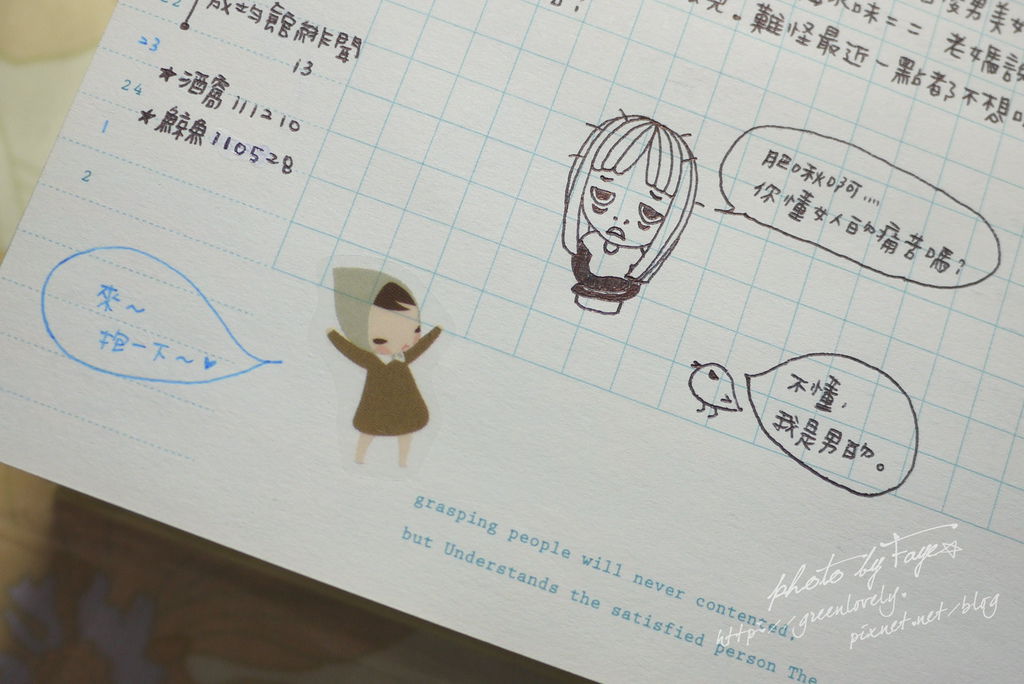 22
成均館緋聞
13
23
★酒窩111210
24
★鯨魚110528
1
2
難怪最近一點都不想
肥啾啊....
你懂女人的痛苦嗎?
來~
抱一下~♥
不懂,
我是男的。
grasping people will never contented,
but Understands the satisfied person The
photo by Faye☆
http://greenlovely.
pixnet.net/blog